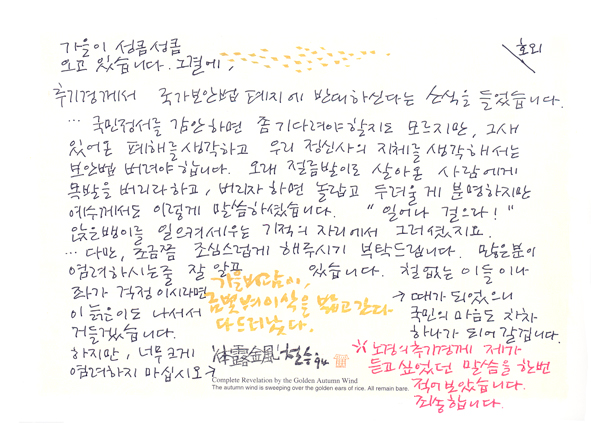 가을이 성큼성큼
오고 있습니다. 그결에,
호외
추기경께서 국가보안법 폐지에 반대하신다는 소식을 들었습니다.
… 국민정서를 감안하면 좀 기다려야 할지도 모르지만, 그새
있어온 폐해를 생각하고 우리 정신사의 지체를 생각해서는
보안법 버려야 합니다. 오래 절름발이로 살아온 사람에게
목발을 버리라 하고, 버리자 하면 놀랍고 두려울 게 분명하지만
예수께서도 이렇게 말씀하셨습니다. "일어나 걸으라!"
앉은뱅이를 일으켜 세우는 기적의 자리에서 그러셨지요.
… 다만, 조금쯤 조심스럽게 해주시기 부탁드립니다. 많은 분이
염려하시는 줄 잘 알고 있습니다. 철없는 이들이나
좌가 걱정이시라면
이 늙은이도 나서서
거들겠습니다.
하지만, 너무 크게
염려하지 마십시오→
→때가 되었으니
국민의 마음도 차차
하나가 되어 갈겁니다.
가을바람이,
금빛 벼이삭을 밟고 간다
다 드러났다.
体露金風 철수 94
Complete Revelation by the Golden Autumn Wind
The autumn wind is sweeping over the golden ears of rice. All remain bare.
※ 노경의 추기경께 제가
듣고 싶었던 말씀을 한번
적어 보았습니다.
죄송합니다.